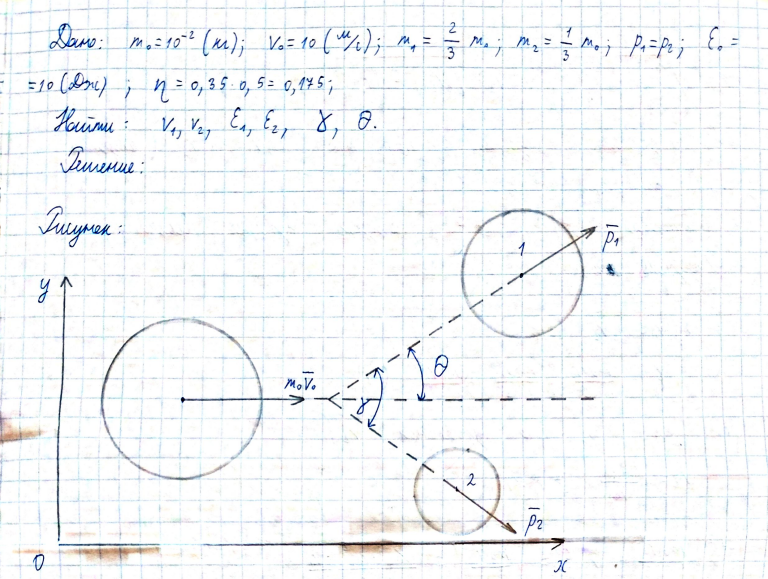 Дано: m₀=10⁻² (кг); v₀=10 (м/с); m₁ = 2/3 m₀; m₂ = 1/3 m₀; p₁=p₂; ε₀ =
=10 (Дж); η = 0,35·0,5 = 0,175;
Найти: v₁, v₂, ε₁, ε₂, γ, θ.
Решение:
Рисунок:
y
1
p̄₁
m₀v̄₀
θ
γ
2
p̄₂
0
x